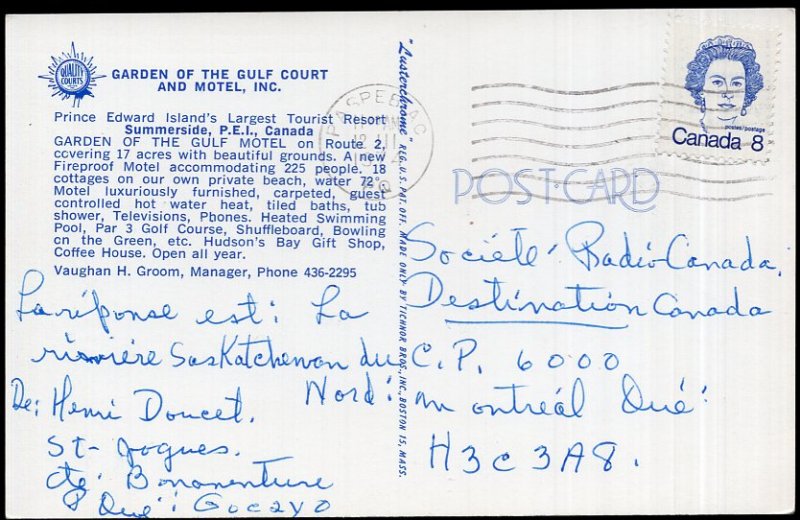 QUALITY COURTS
GARDEN OF THE GULF COURT
AND MOTEL, INC.
Prince Edward Island's Largest Tourist Resort
Summerside, P.E.I., Canada
GARDEN OF THE GULF MOTEL on Route 2,
covering 17 acres with beautiful grounds. A new
Fireproof Motel accommodating 225 people. 18
cottages on our own private beach, water 72°.
Motel luxuriously furnished, carpeted, guest
controlled hot water heat, tiled baths, tub
shower, Televisions, Phones. Heated Swimming
Pool, Par 3 Golf Course, Shuffleboard, Bowling
on the Green, etc. Hudson's Bay Gift Shop,
Coffee House. Open all year.
Vaughan H. Groom, Manager, Phone 436-2295
La réponse est: La
rivière Saskatchewan du
Nord:
De: Henri Doucet.
St-Jogues.
cté Bonaventure
Qué: Goczyo
"Lusterchrome" REG. U.S. PAT. OFF. MADE ONLY BY TICHNOR BROS., INC., BOSTON 15, MASS.
PASPEBIAC
postes/postage
Canada 8
POST CARD
Societé Radio-Canada,
Destination Canada
C.P. 6000
Montréal Qué:
H3C3A8.